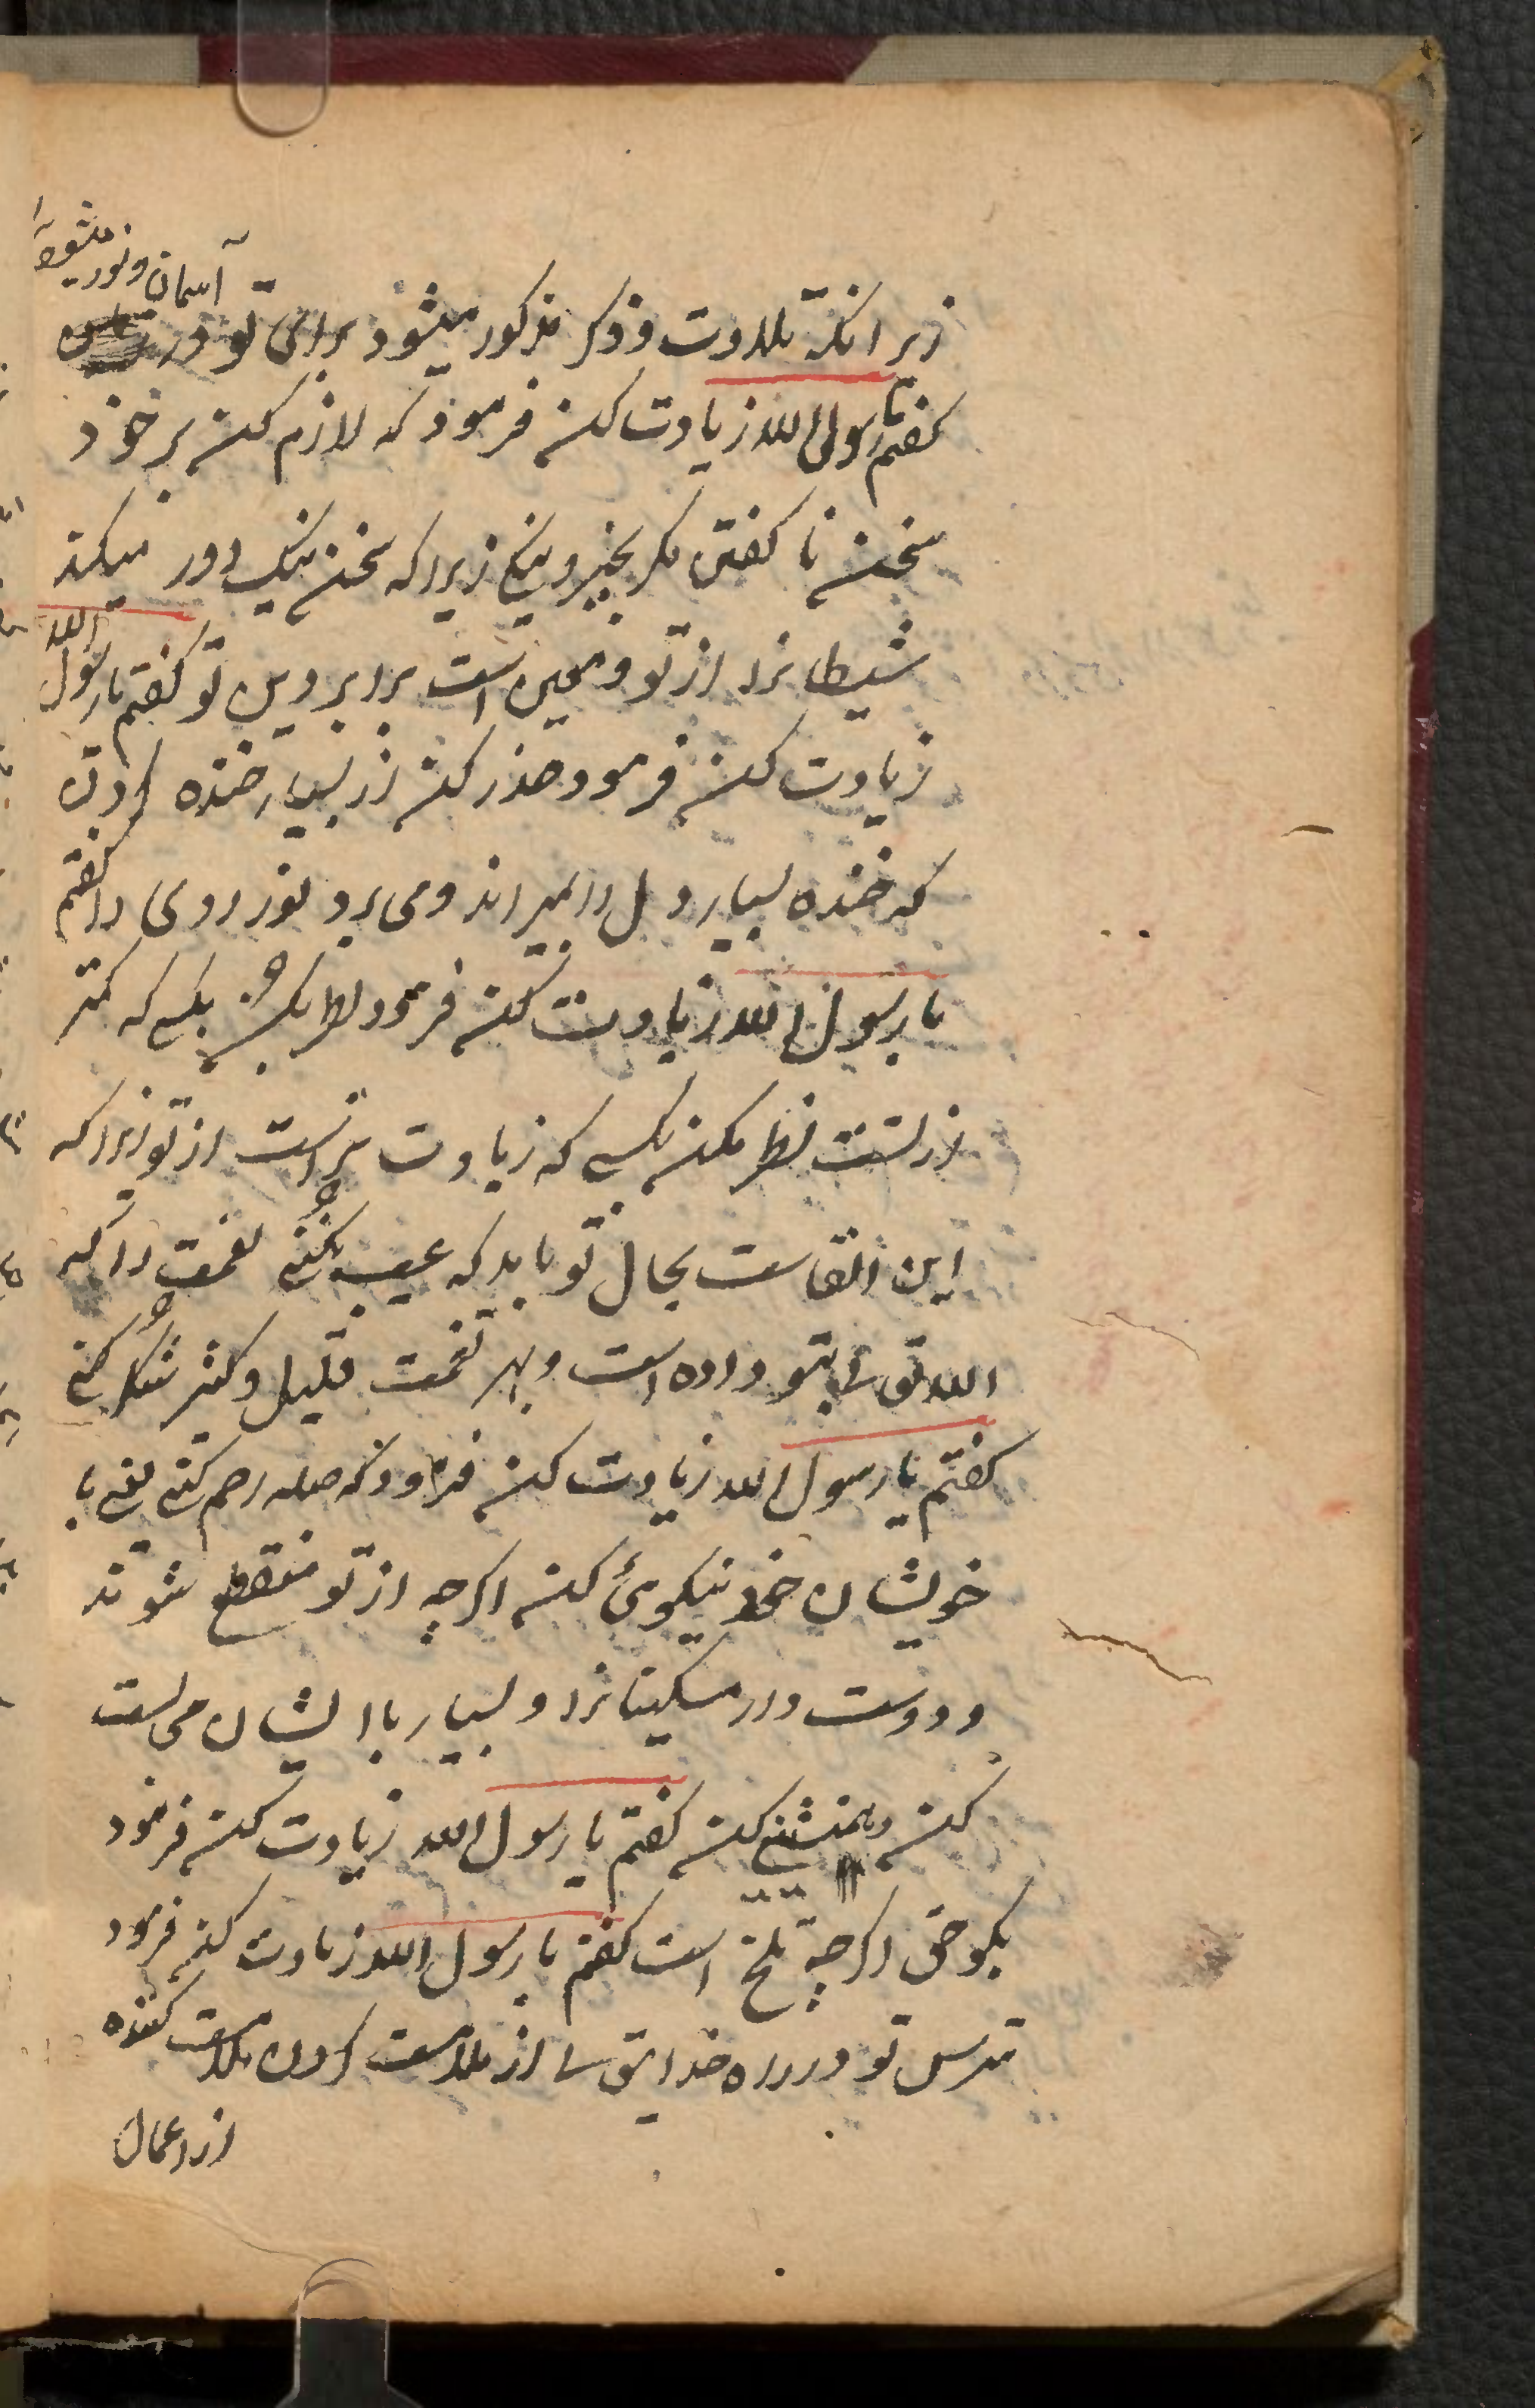 زیرانکه تلاوت و ذکر مذکور میشود برای تو در
آسمان و نور میشود
گفتم یا رسول الله زیادت کن فرمود که لازم کن بر خود
سخن نا گفتن مگر بخیر و نیکی زیرا که سخن نیک دور میکند
شیطانرا از تو و معین است برا بر دین تو گفتم یا رسول الله
زیادت کن فرمود حذر کن از بسیار خنده کردن
که خنده بسیار دل را میراند و می برد نور روی را گفتم
یا رسول الله زیادت کن فرمود نظر بکن بکسی که کمتر
از تست نظر مکن بکسی که زیادت تر است از تو زیرا که
این القاست بحال تو باید که عیب نکنی نعمت را که
الله تعالی بتو داده است و بهر نعمت قلیل و کثیر شکر کنی
گفتم یا رسول الله زیادت کن فرمود که صله رحم کنی یعنی با
خویشان خود نیکوئی کن اگرچه از تو منقطع شوند
و دوست دار مسکینانرا و بسیار با ایشان مجالست
کن و همنشینی کن گفتم یا رسول الله زیادت کن فرمود
بگو حق اگرچه تلخ است گفتم یا رسول الله زیادت کن فرمود
مترس تو در راه خدایتعالی از ملامت کردن ملامت کننده
از اعمال